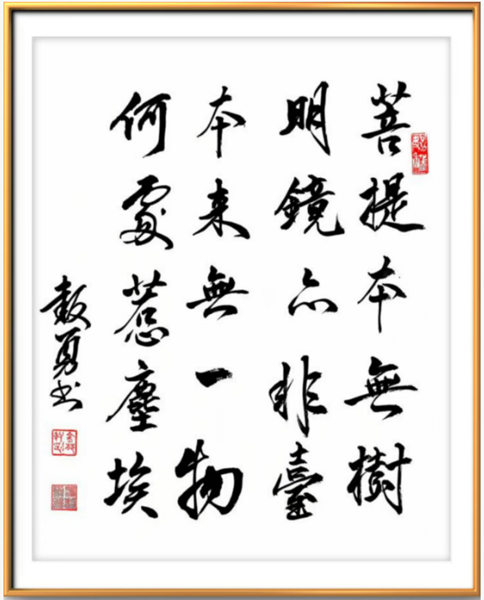 菩提本無樹
明鏡亦非臺
本来無一物
何處惹塵埃
勇书